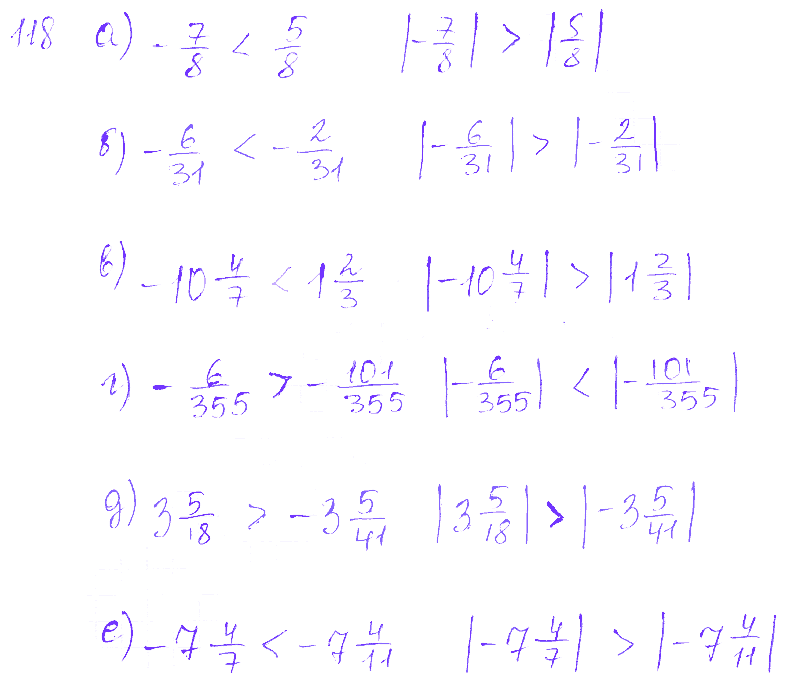 118 а) -7/8 < 5/8 |-7/8| > |5/8|
б) -6/31 < -2/31 |-6/31| > |-2/31|
в) -10 4/7 < 1 2/3 |-10 4/7| > |1 2/3|
г) -6/355 > -101/355 |-6/355| < |-101/355|
д) 3 5/18 > -3 5/41 |3 5/18| > |-3 5/41|
е) -7 4/7 < -7 4/11 |-7 4/7| > |-7 4/11|